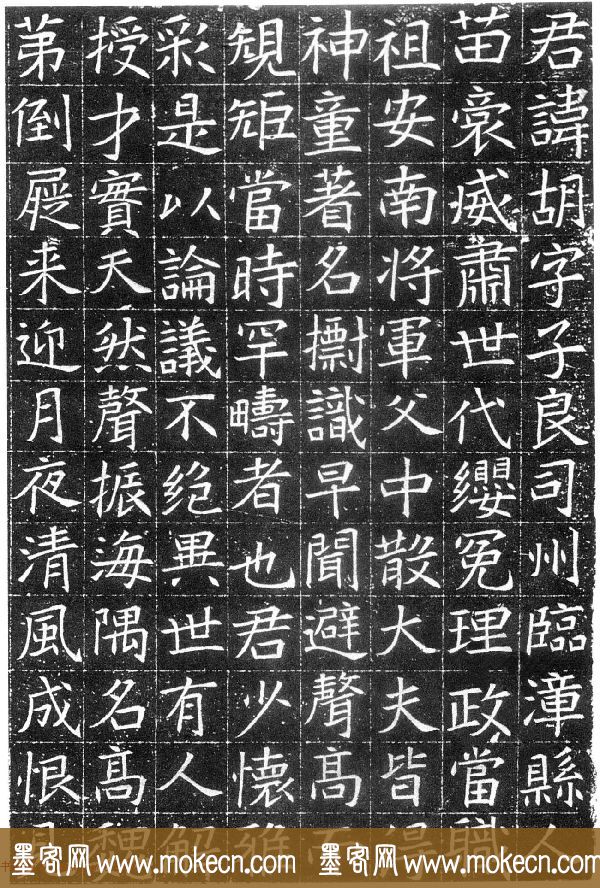 君諱胡字子良司州臨漳縣人
苗裔威肅世代纓冕理政當職
祖安南将軍父中散大夫皆
神童著名識早聞避聲高而
規矩當時罕疇者也君少懐雅
彩是以論議不絕異世有人解
授才實天然聲振海隅名高魏
苐倒屣来迎月夜清風成恨
墨客网 www.mokecn.com 墨客网 www.mokecn.com